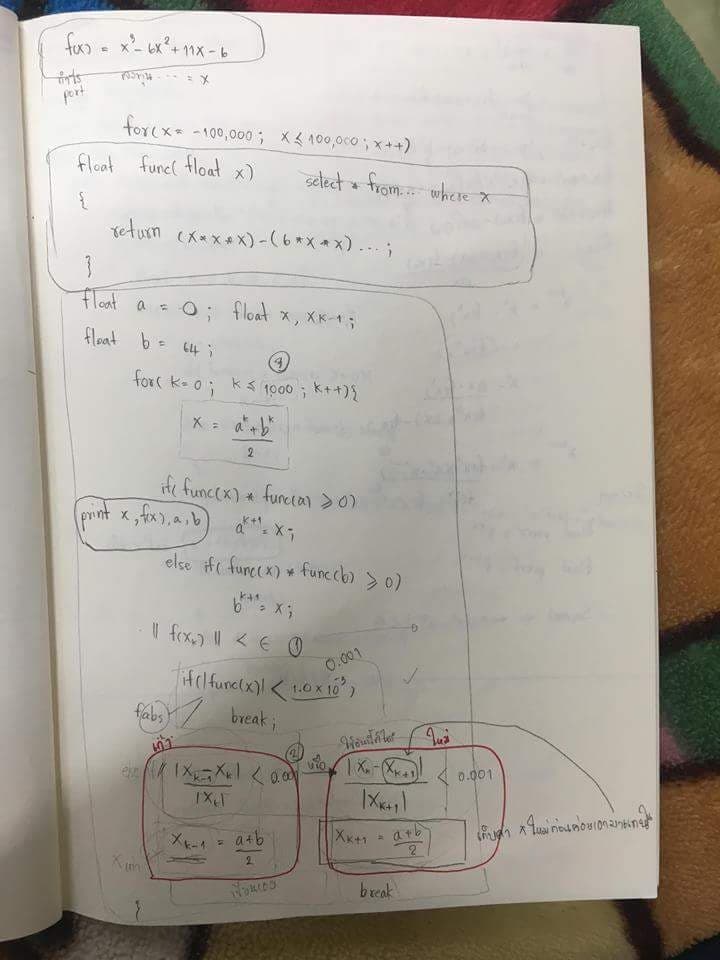 f(x) = x³ - 6x² + 11x - 6
port
= x
for(x = -100,000 ; x ≤ 100,000 ; x++)
float func( float x) select * from... where x
{
return (x*x*x)-(6*x*x) ... ;
}
float a = 0 ; float x, xk-1 ;
float b = 64 ;
④
for( k=0 ; k ≤ 1000 ; k++){
x = (aᵏ + bᵏ)/2
if( func(x) * func(a) ≥ 0)
print x, f(x), a, b
aᵏ⁺¹ = x;
else if( func(x) * func(b) ≥ 0)
bᵏ⁺¹ = x;
|| f(xₖ) || < ∈ ①
0.001
if(|func(x)| < 1.0 x 10⁻³)
fabs
break;
เก่า ② ใหม่
|xk-1 - xk| / |xk| < 0.001 หรือ |xk - xk+1| / |xk+1| < 0.001
xk-1 = (a+b)/2 xk+1 = (a+b)/2
break
}